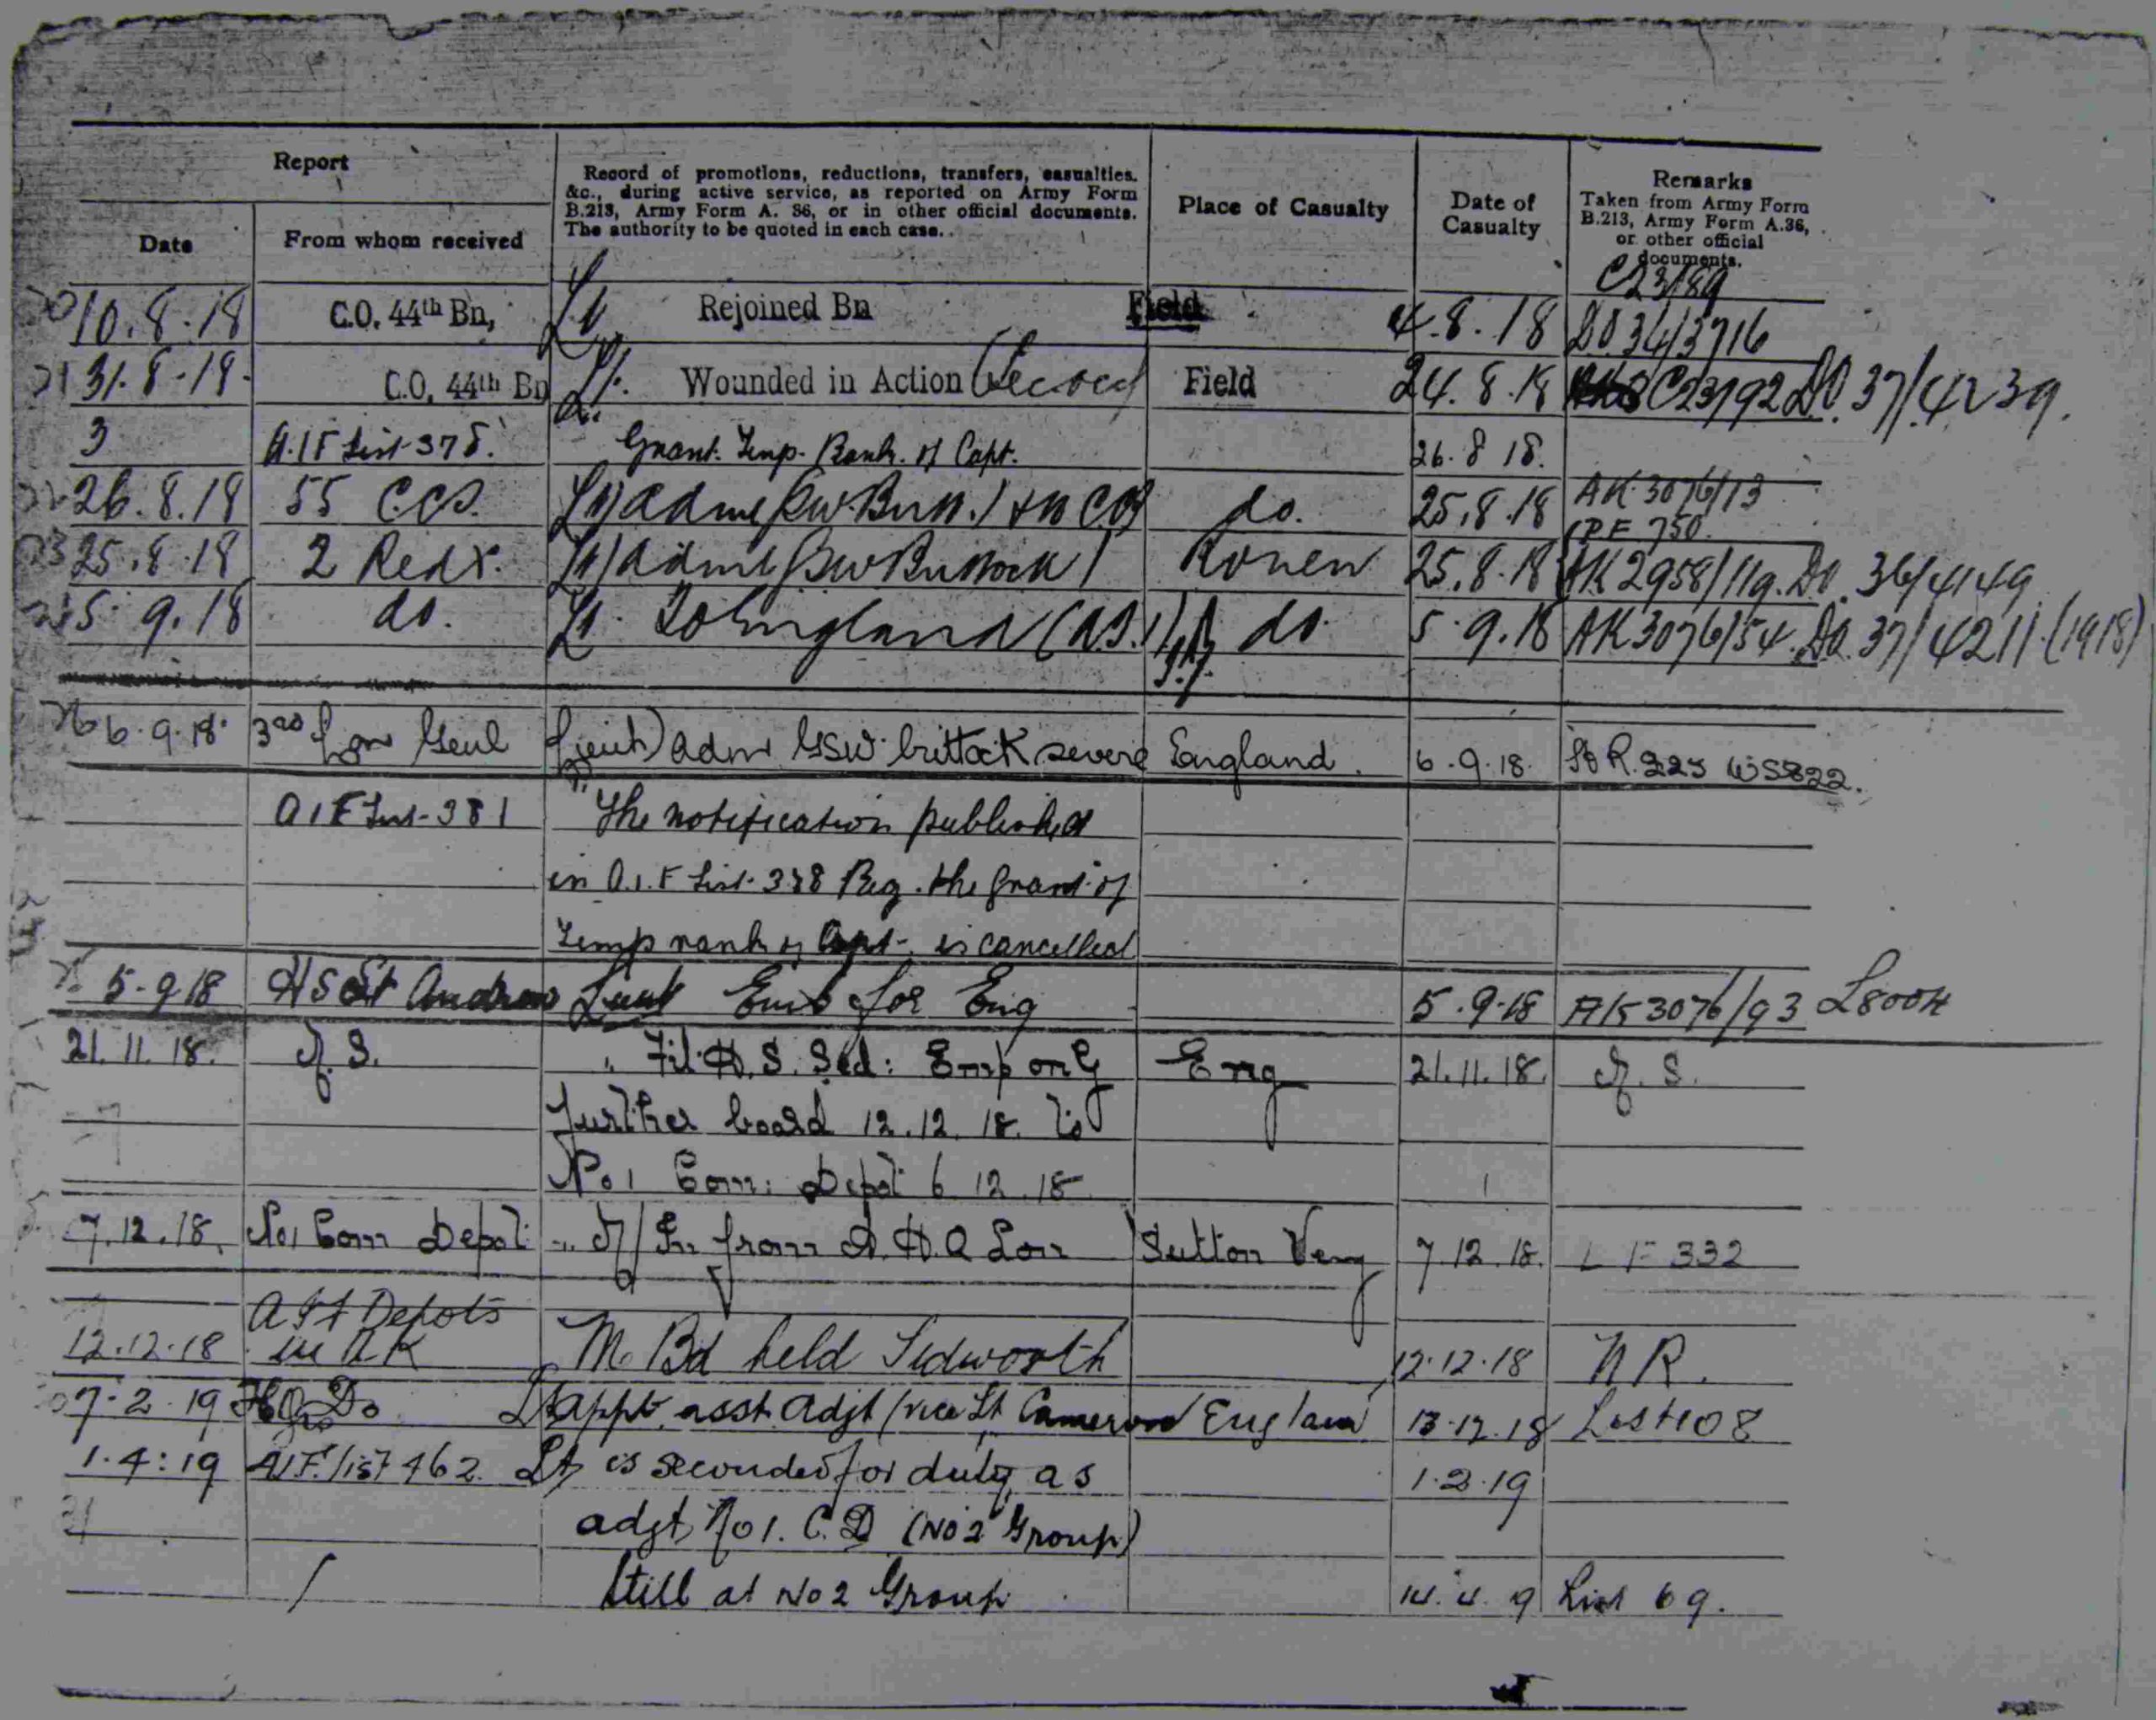 Report
Record of promotions, reductions, transfers, casualties.
&c., during active service, as reported on Army Form
B.213, Army Form A. 36, or in other official documents.
The authority to be quoted in each case.
Place of Casualty
Date of
Casualty
Remarks
Taken from Army Form
B.213, Army Form A.36,
or other official
documents.
Date
From whom received
C23/89
10.8.18 C.O. 44th Bn, Lt Rejoined Bn Field 4.8.18 DO 34/3716
31.8.18. C.O. 44th Bn Lt. Wounded in Action (Second) Field 24.8.18 C23/92 DO. 37/4239.
3 A.I.F List 378. Grant. Temp. Rank. of Capt. 26.8.18.
26.8.18 55 C.C.S. Lt) adm do. 25.8.18 AK 3076/13
PF 750.
25.8.18 2 Redx. Lt) Rouen 25.8.18 AK 2958/119. DO. 36/4149
5.9.18 do. Lt. To England do. 5.9.18 AK 3076/54. DO. 37/4211 (1918)
6.9.18. 3rd Lon Genl Lieut) adm GSW. buttock severe England. 6.9.18. 
A I F List 381 The notification published
in A.I.F List 378 Reg. the grant of
Temp rank of Capt. is cancelled
5-9-18 H S St Andrew Lieut Emb for Eng 5.9.18 AK 3076/93
21.11.18. " Fit H.S. Sed: Emp only Eng 21.11.18.
further board 12.12.18. To
No 1 Com: Depot 6 12.18
7.12.18. No 1 Com Depot " In from A.H.Q Lon Sutton Veny 7.12.18. L F 332
A I F Depots
12.12.18 in U K M Bd held Tidworth 12.12.18 N R.
7.2.19 HQ Do Lt appt. asst Adjt (vice Lt Cameron England 13.12.18 List 108
1.4:19 AIF. list 462. Lt is seconded for duty as 1.2.19
adjt No 1. C. D (No 2 Group)
Still at No 2 Group List 69.